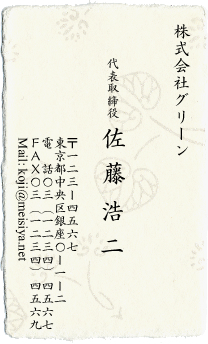 株式会社グリーン
代表取締役
佐藤浩二
〒一二三ー四五六七
東京都中央区銀座〇ー一ー二
電　話〇三（一二三四）四五六七
ＦＡＸ〇三（一二三四）四五六九
Mail: koji@meisiya.net